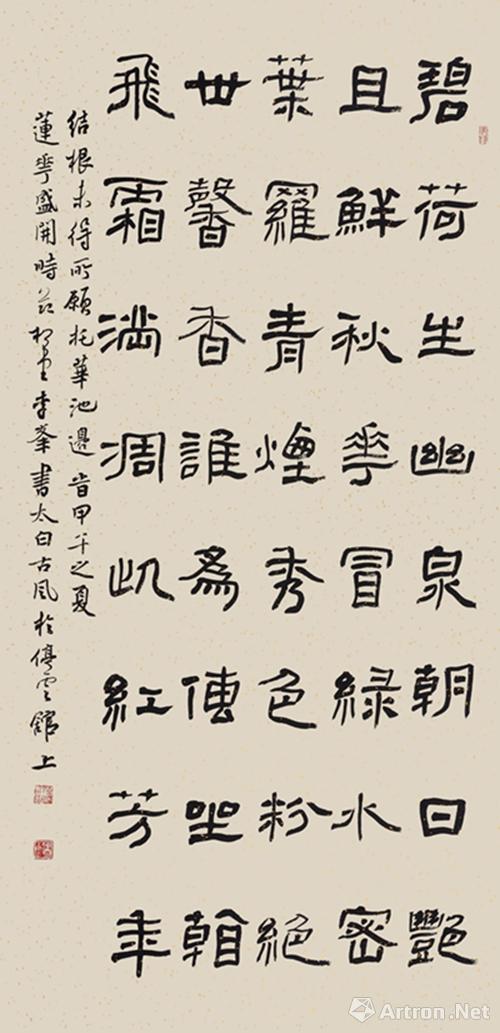 碧荷生幽泉朝日豔
且鮮秋華冒綠水密
葉羅青煙秀色粉絕
世馨香誰為傳坐看
飛霜滿凋此紅芳年
結根未得所願托華池邊 旹甲午之夏
蓮華盛開時李峯書太白古風於停雲館上
Artron.Net